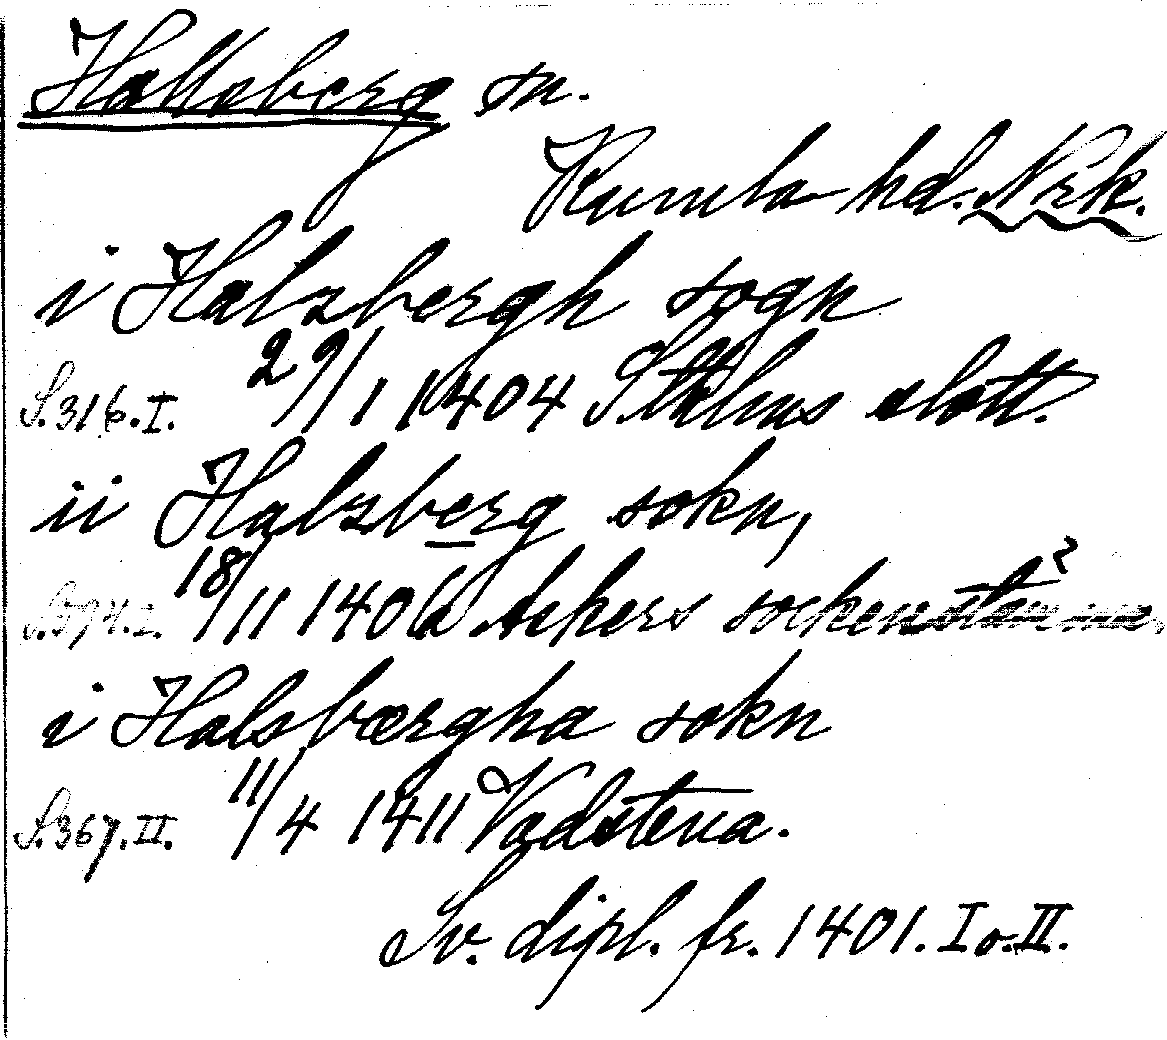 Hallsberg sn.
Kumla hd. Nrk.
i Halzbergh sogn
S. 316. I. 29/1 1404 Sthlms slott.
ii Halzberg sokn,
18/11 1406 Askers sockenstämma?
i Halsbærgha sokn
S. 367. II. 11/4 1411 Vadstena.
Sv. dipl. fr. 1401. I o. II.